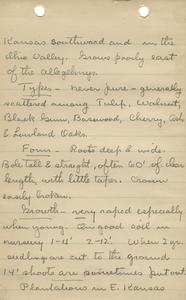 Kansas southward and in the
Ohio Valley. Grows poorly east
of the Alleghenys.
Types - never pure - generally
scattered among Tulip, Walnut,
Black Gum, Basswood, Cherry, Ash
& Lowland Oaks.
Form - Roots deep & wide.
Bole tall & straight, often 60' of clear
length, with little taper. Crown
easily broken.
Growth - very rapid especially
when young. On good soil in
nursery 1-4' 2-12' When 2 yr.
seedlings are cut to the ground
14' shoots are sometimes put out.
Plantations in E. Kansas